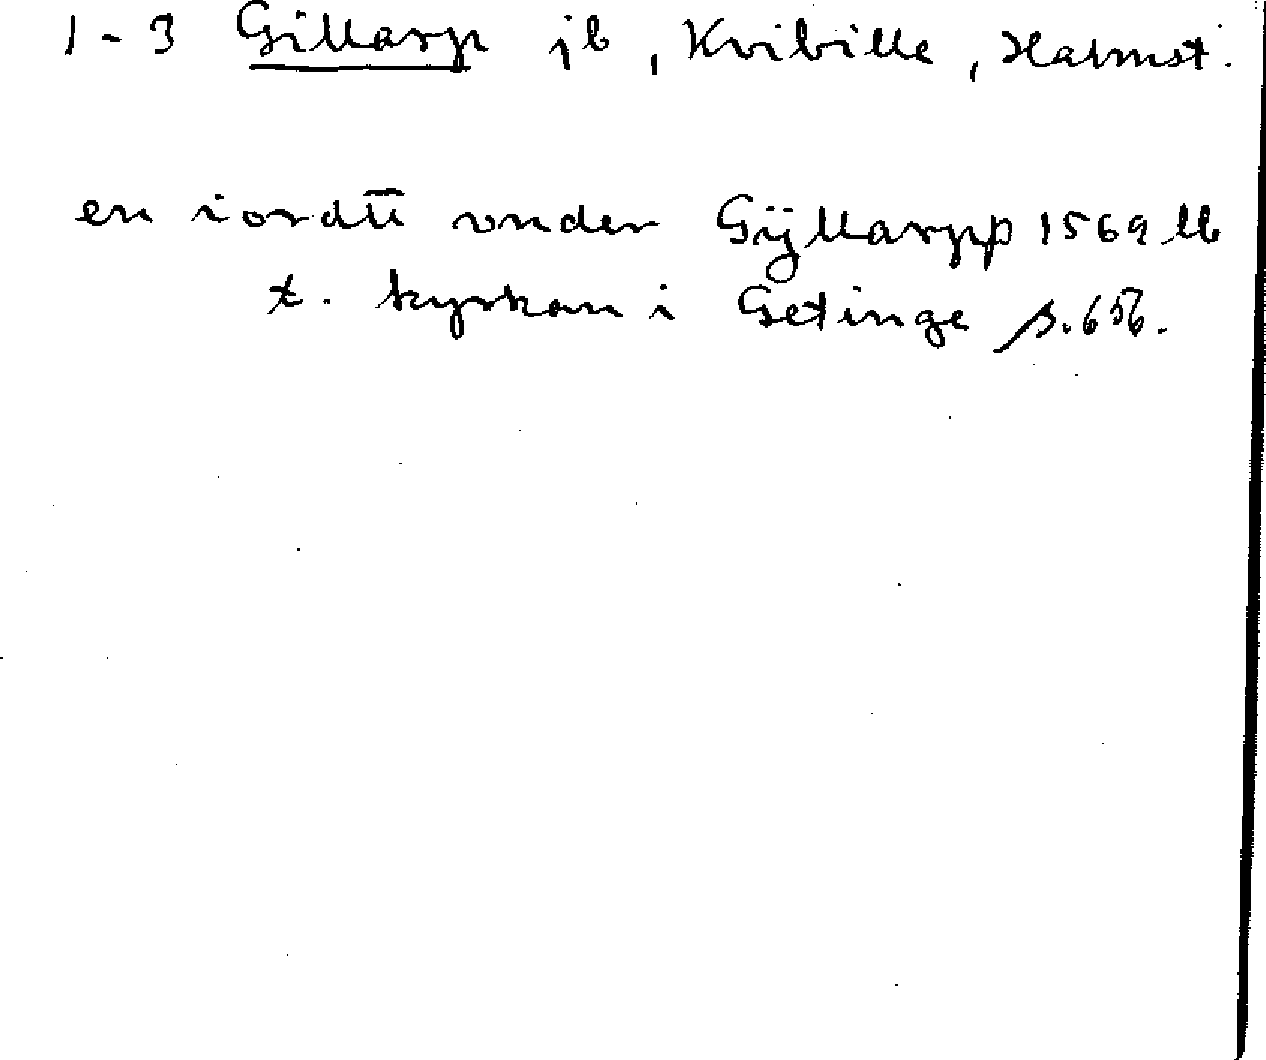 1-3 Gillarp jb, Kvibille, Halmst.
en iordtt vnder Gÿllarpp 1569 lb
t. kyrkan i Getinge s. 656.